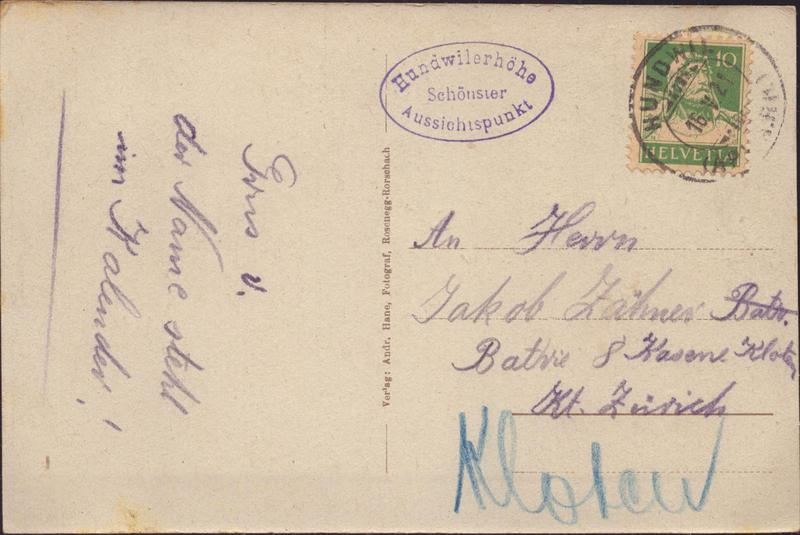 Hundwilerhöhe
Schönster
Aussichtspunkt
10
HELVETIA
HUNDWIL
16. V. 21
Gruss v.
der Name steht
im Kalender!
Verlag: Andr. Hane, Fotograf, Rosenegg-Rorschach
An Herrn
Jakob Zähner Batr.
Batrie 8 Kasene Kloten
Kt. Zürich
Kloten